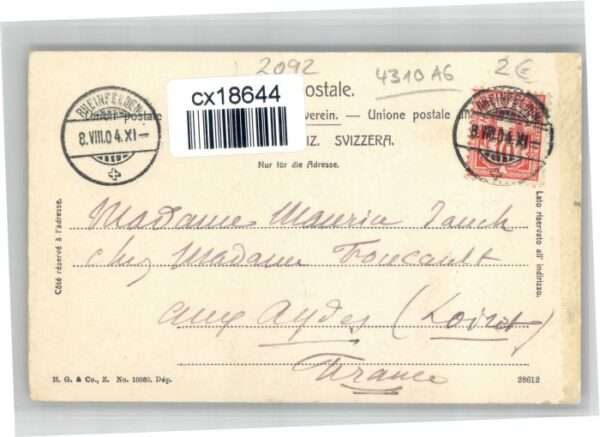 2092
4310 A6
2€
cx18644
ostale.
RHEINFELDEN
8.VIII.04.XI–
RHEINFELDEN
8.VIII.04.XI–
postale
verein. — Union postale
IZ. SVIZZERA.
Nur für die Adresse.
Côté réservé à l'adresse.
Lato riservato all' indirizzo.
Madame Mauria Jauch
chez Madame Foucault
aux Aydes (Loiret)
France
H. G. & Co., Z. No. 10869. Dép.
28612